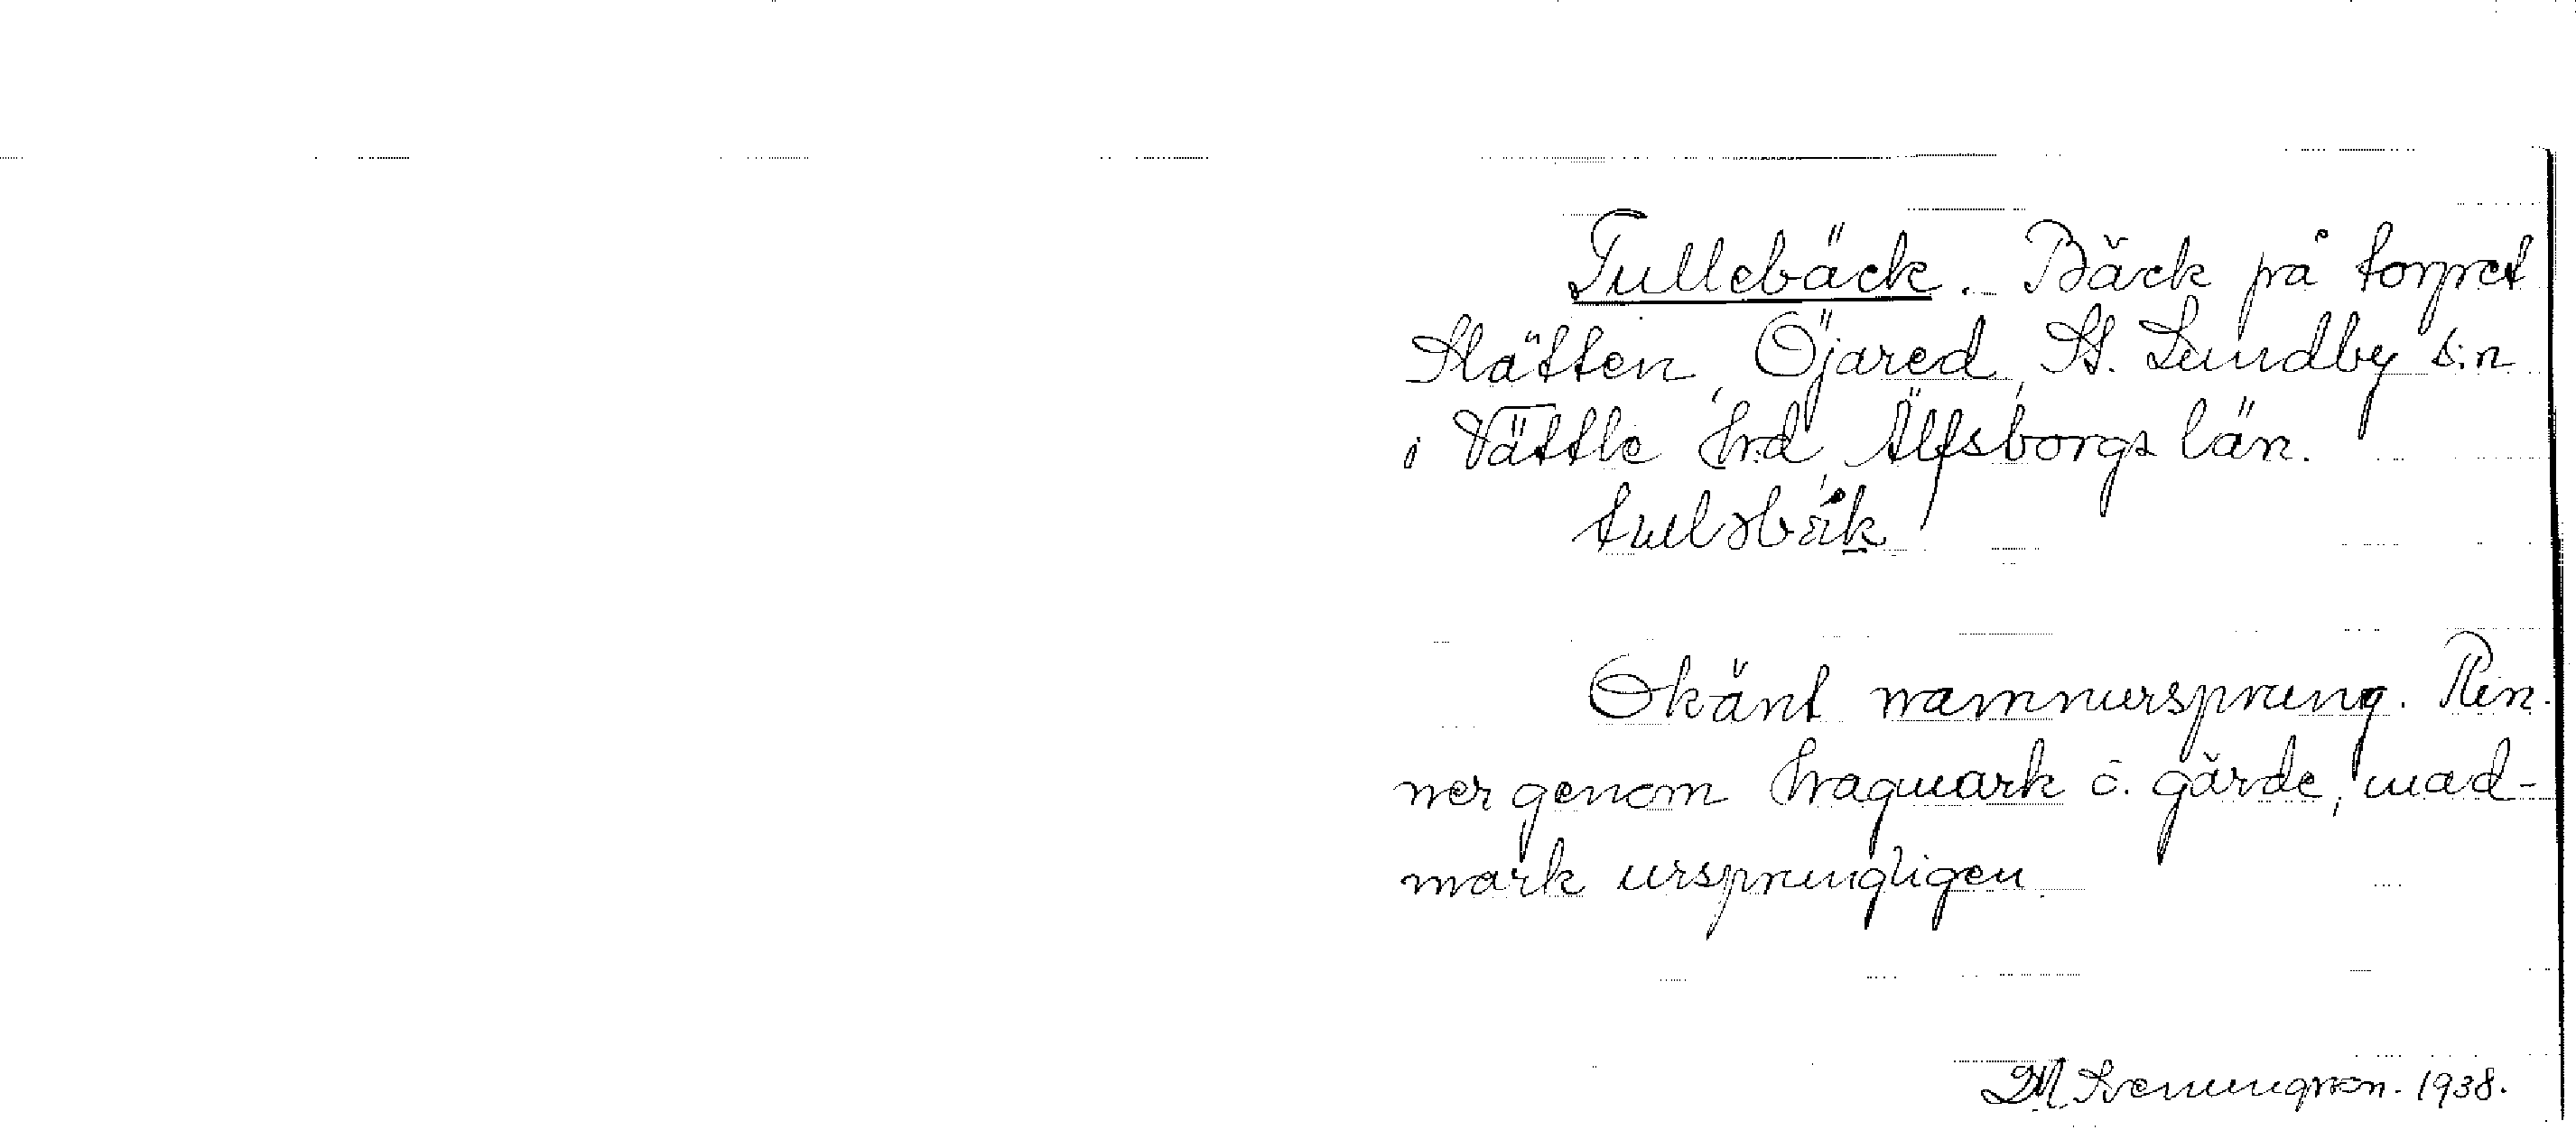 Tullebäck. Bäck på torpet
Slätten, Öjared, St. Lundby s:n
i Vättle hrd, Älfsborgs län.
Okänt namnursprung. Rin-
ner genom hagmark o. gärde, mad-
mark ursprungligen.
1938.